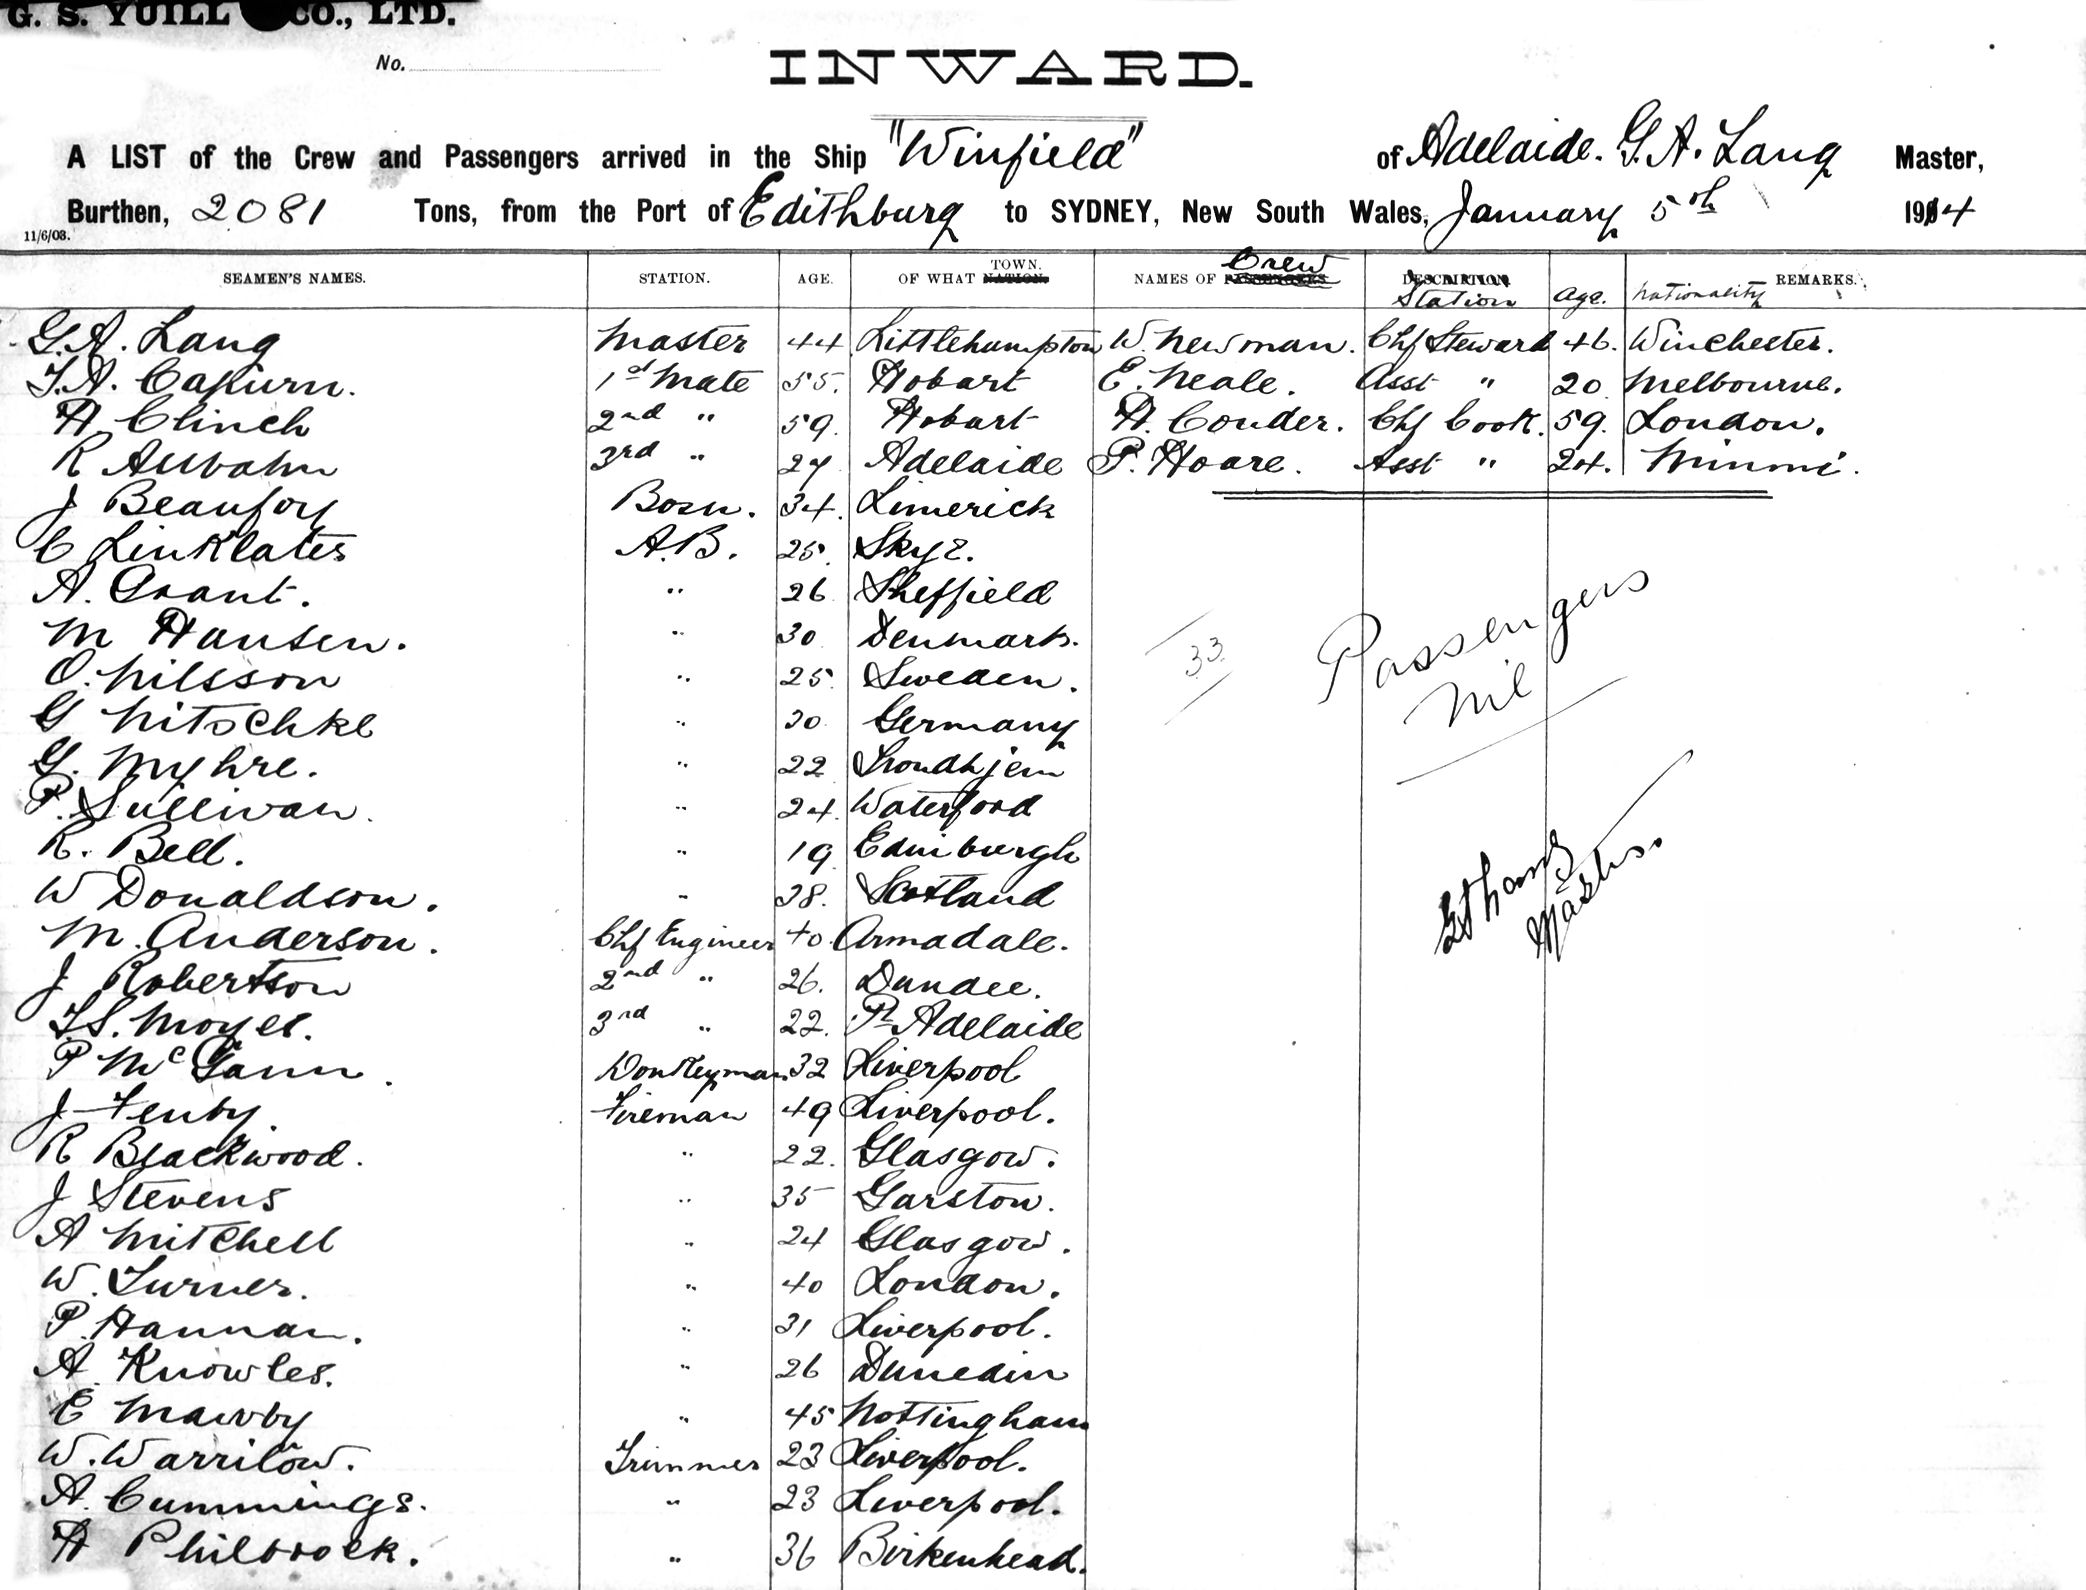 G. S. YUILL & CO., LTD.
No.
INWARD.
A LIST of the Crew and Passengers arrived in the Ship "Winfield" of Adelaide. G. A. Lang Master,
Burthen, 2081 Tons, from the Port of Edithburg to SYDNEY, New South Wales, January 5th 1914
11/6/03.
SEAMEN'S NAMES. STATION. AGE. OF WHAT NATION. TOWN. NAMES OF PASSENGERS Crew DESCRIPTION Station age. Nationality REMARKS.
G. A. Lang Master 44 Littlehampton W. Newman. Chf Steward 46. Winchester.
1st Mate 55. Hobart E. Neale. Asst " 20 Melbourne.
H. Clinch 2nd " 59. Hobart H. Couder. Chf Cook. 59. London.
R 3rd " 27 Adelaide P. Hoare. Asst " 24. Minmi.
J Beaufoy Bosn. 34. Limerick
C Linklater A.B. 25. Skye.
A. Grant. " 26 Sheffield
M Hansen. " 30 Denmark.
O. Nilsson " 25 Sweden.
G Nitschke " 30 Germany
G. Myhre. " 22 Trondhjem
P. Sullivan. " 24. Waterford
R. Bell. " 19 Edinburgh
W Donaldson. " 38. Scotland
M. Anderson. Chf Engineer 40. Armadale.
J Robertson 2nd " 26. Dundee.
T.S. Moyes. 3rd " 22. Pt Adelaide
P McGann. Donkeyman. 32 Liverpool
J Fenby Fireman 49 Liverpool.
R Blackwood. " 22. Glasgow.
J Stevens " 35 Garston.
A Mitchell " 24 Glasgow.
W. Turner. " 40 London.
P. Hannan. " 31 Liverpool.
A. Knowles. " 26 Dunedin
E Mawby " 45 Nottingham
W. Warrilow. Trimmer 23 Liverpool.
A. Cummings. " 23 Liverpool.
H Philbrock. " 36 Birkenhead.
33
Passengers
Nil
G A Lang
Master.